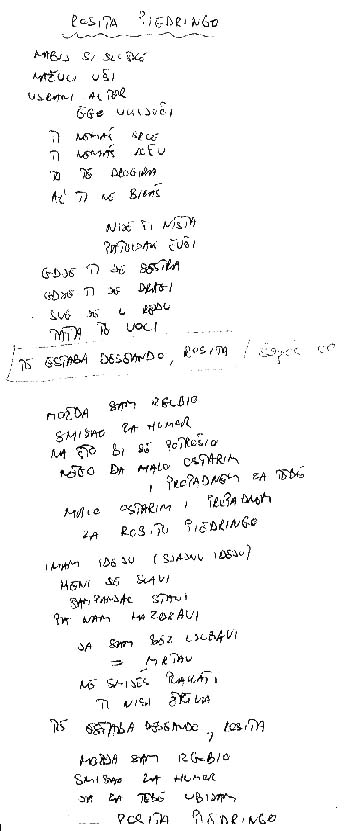 ROSITA PIEDRINGO
NABIJ SI SLUŠKE
NAŽULJ UŠI
USRANI ALTER
EGO UKLJUČI
TI NEMAŠ SRCE
TI NEMAŠ
TO TE DROGIRA
AL' TI NE BIRAŠ
NIJE TI NIŠTA
PATULJAK ČUČI
GDJE TI JE SESTRA
GDJE TI JE DRAGI
SVE JE U REDU
TATA TE VOLI
TE ESTABA DESEANDO, ROSITA /
MOŽDA SAM REBIO
SMISAO ZA HUMOR
NA ŠTO BI SE POTROŠIO
NEGO DA MALO OSTARIM
I PROPADNEM ZA TEBE
MALO OSTARIM I PROPADNEM
ZA ROSITU PIEDRINGO
IMAM IDEJU (SJAJNU IDEJU)
MENI SE SLAVI
ŠAMPANJAC STAVI
PA NAM NAZDRAVI
JA SAM BEZ LJUBAVI
= MRTAV
NE SMIJEŠ PLAKATI
TI NISI
TE ESTABA DESEANDO, ROSITA
MOŽDA SAM REBIO
SMISAO ZA HUMOR
JA ZA TEBE UBIJAM
ROSITA PIEDRINGO